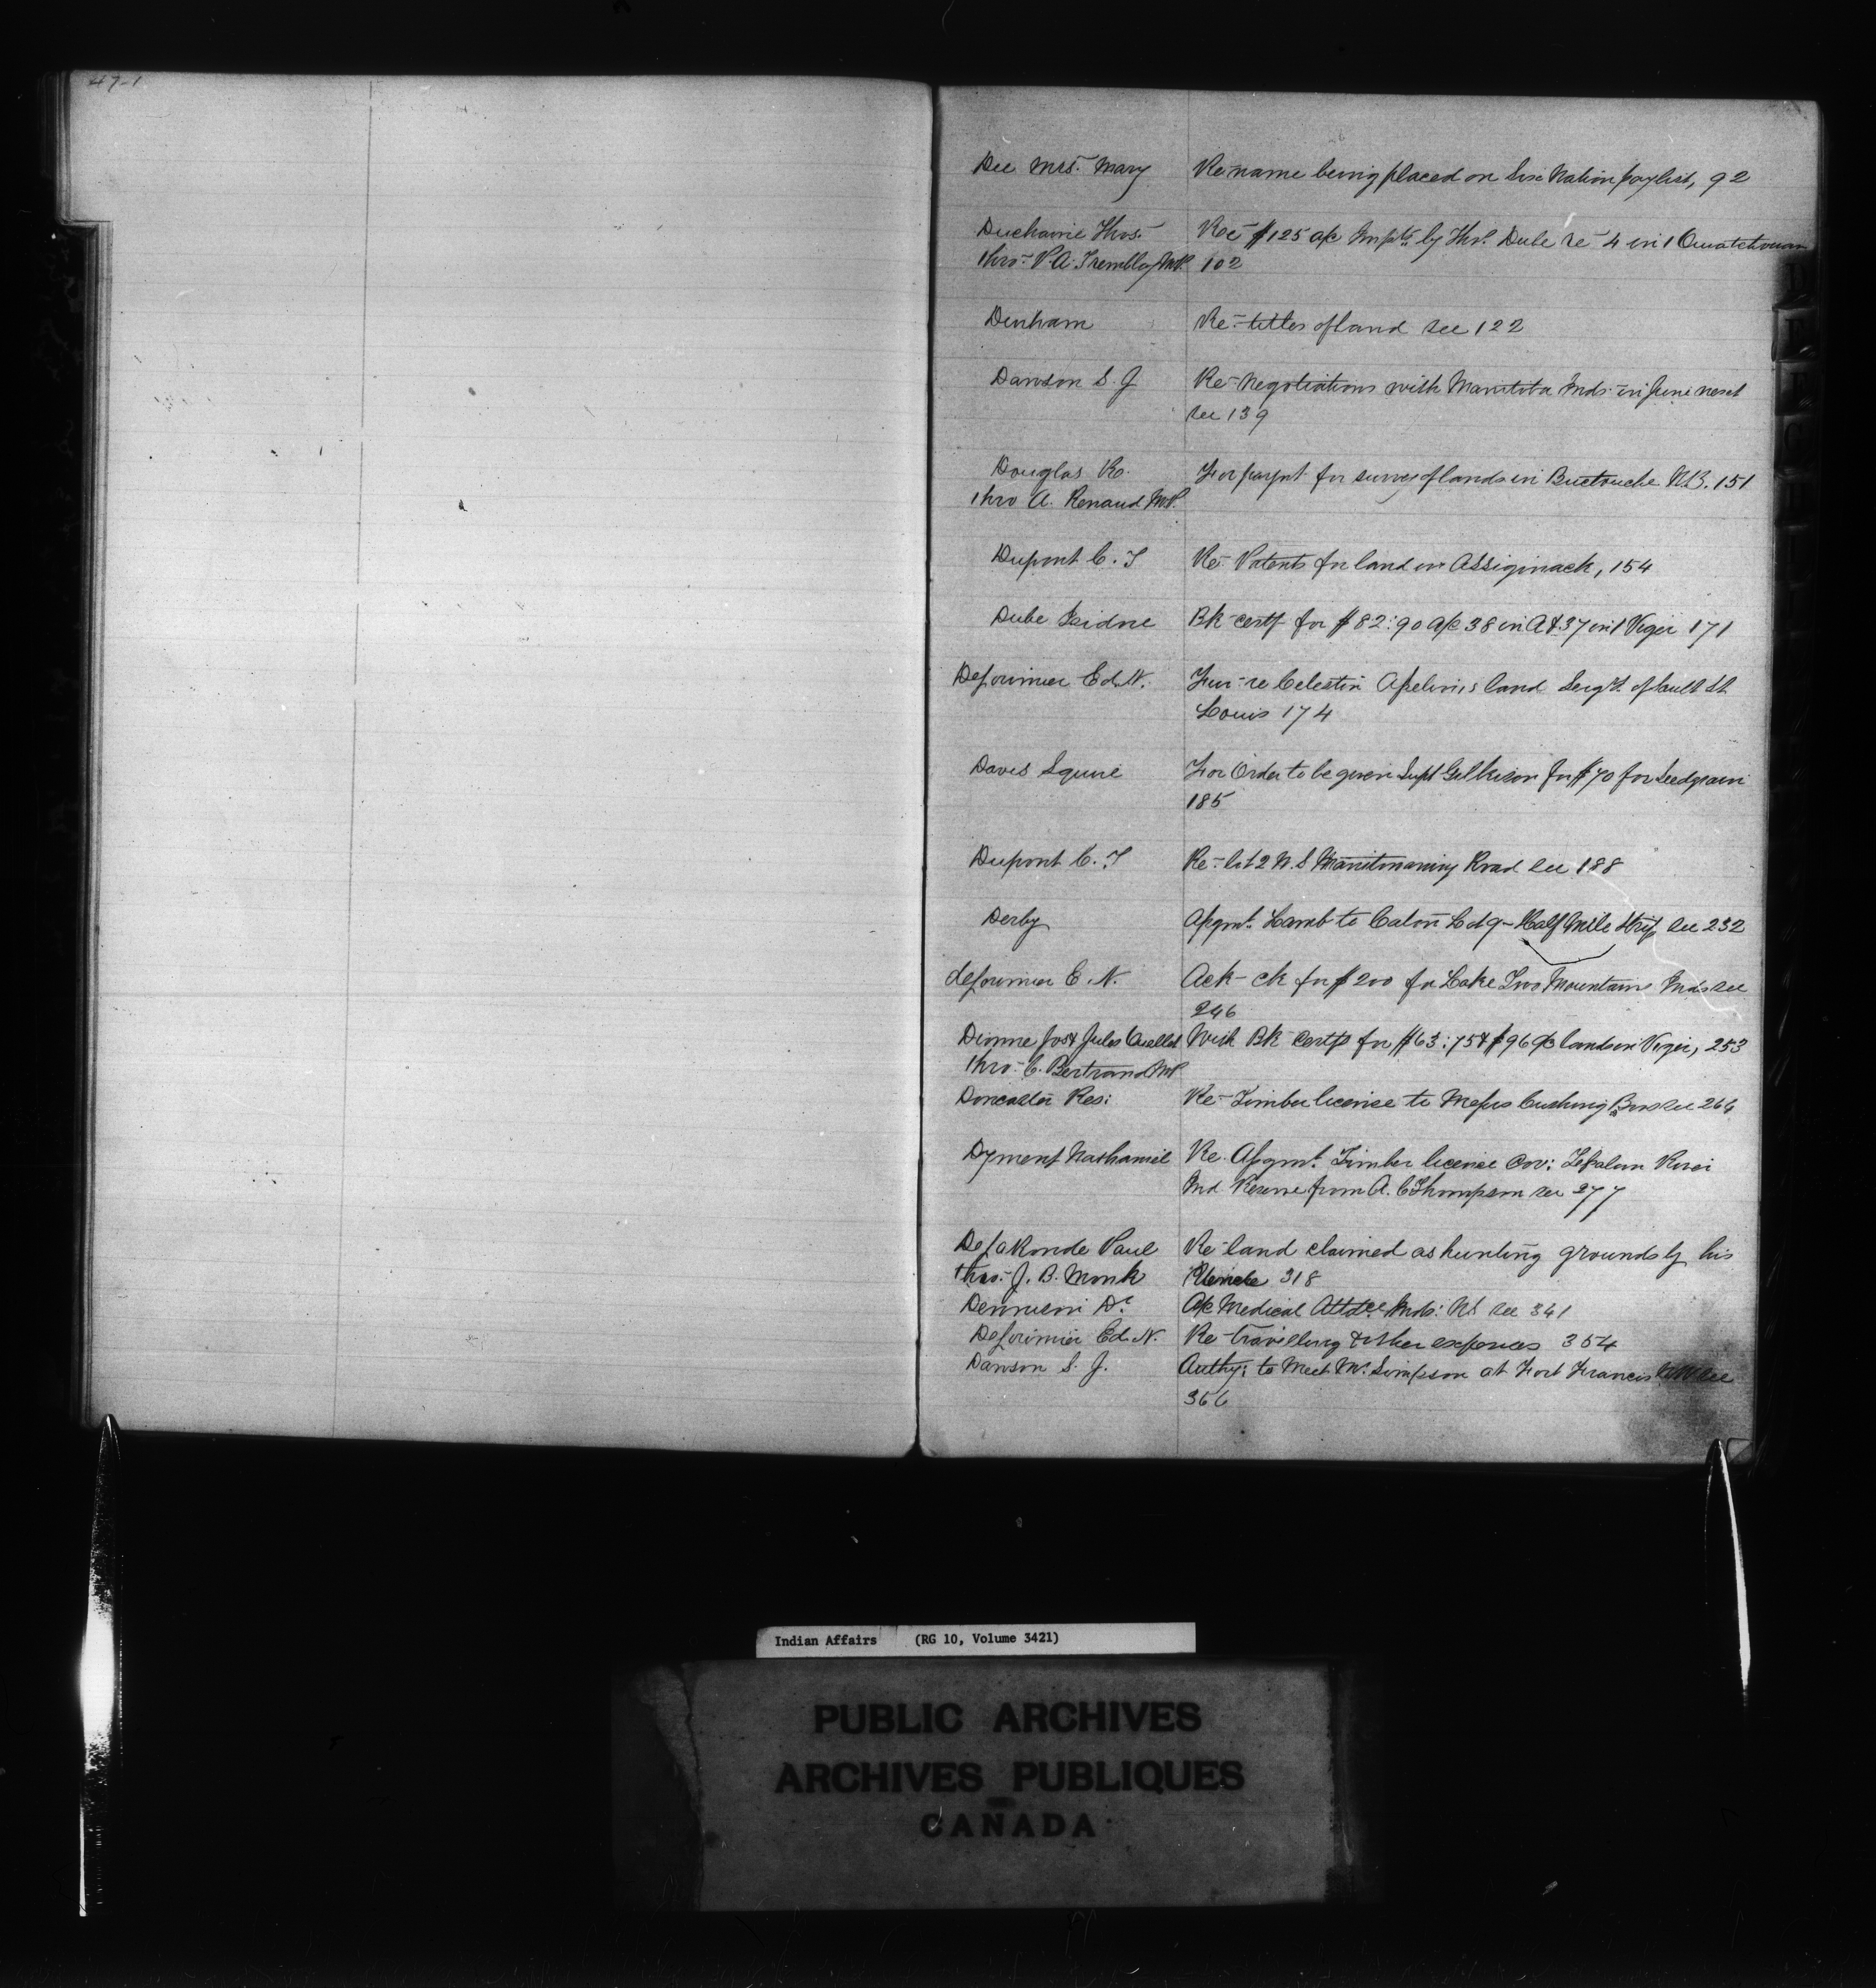 47-1
Dee Mrs. Mary Re name being placed on Six Nation paylist, 92
Duchaine Thos. Rec $125 a/c Impts by Thos. Dube re 4 in 1 Ouiatchouan
thro- P.A. Tremblay M.P. 102
Denham Re- titles of land see 122
Dawson S. J Re- Negotiations with Manitoba Inds. in June next
see 139
Douglas Ro. For paymt for survey of lands in Buctouche N.B. 151
thro A. Renaud M.P.
Dupont C. T Re- Patents for land in Assiginack, 154
Dube Isidore Bk certf for $82:90 a/c 38 in A & 37 in 1 Viger 171
DeLorimier Ed. N. Fur- re Celestin land Seigy. of Sault St
Louis 174
Davis Squire For Order to be given Supt Gilkison for $70 for Seed grain
185
Dupont C. T Re- lot 2 N. S Manitowaning Road see 188
Derby Asgmt. Lamb to Eaton Lot 9- Half Mile Strip see 232
deLorimier E. N. Ack- ck for $200 for Lake Two Mountains Inds see
246
Dionne Jos & Jules Ouellet With Bk Certfs for $63:75 & $96 a/c lands in Viger, 253
thro- C. Bertrand MP
Doncaster Res: Re- Timber license to Messrs Cushing Bros see 266
Dyment Nathaniel Re. Asgmt. Timber license Cov: River
Ind Reserve from A. C Thompson see 277
DeLaRonde Paul Re- land claimed as hunting grounds by his
thro.- J. B. Monk 318
Dr. A/c Medical Attdce Inds: N.S see 341
DeLorimier Ed. N. Re- travelling & other expenses 354
Dawson S. J. Authy: to Meet Mr. Simpson at Fort Francis see
366
Indian Affairs (RG 10, Volume 3421)
PUBLIC ARCHIVES
ARCHIVES PUBLIQUES
CANADA